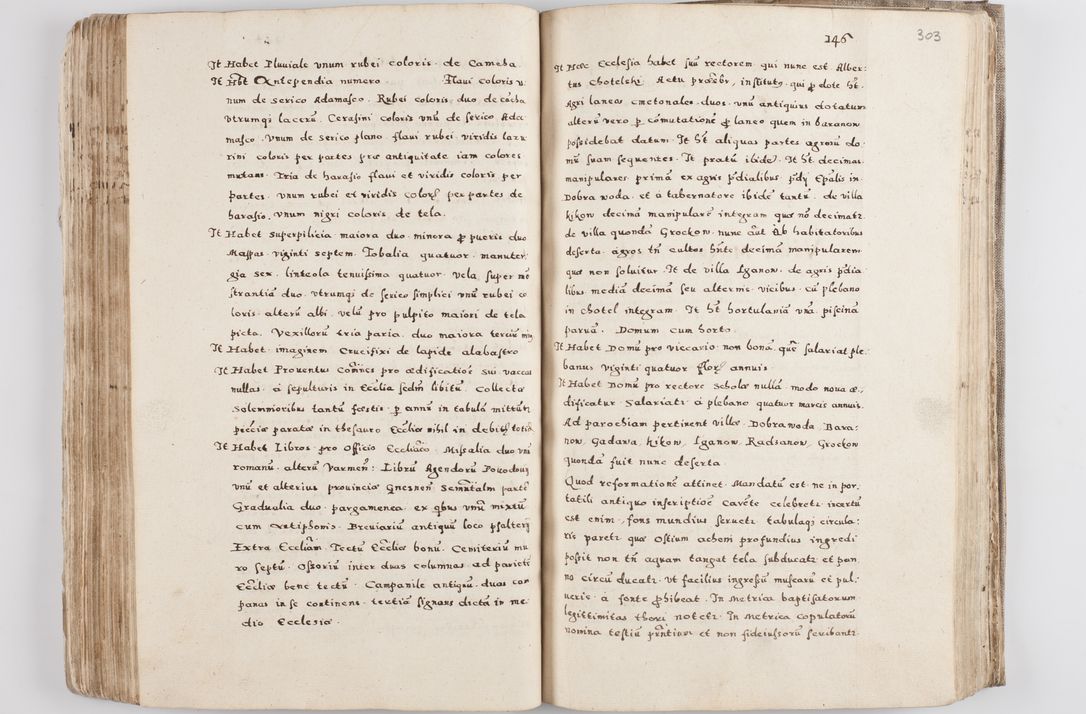 It Habet Pluuiale vnum rubei coloris de Cameha.
It Hƀt Antependia numero Flaui coloris v.
num de serico Adamasco. Rubei coloris duo de
vtrumqs Cerasini coloris vnũ de serico Ada
masco. Vnum de serico plano flaui rubei viridis lazu
rini coloris per partes præ antiquitate iam colores
mutans. Tria de harasio flaui et viridis coloris per
partes. vnum rubei et viridis color per partes de
harasio. vnum nigri coloris de tela.
It Habet superpilicia maiora duo minora ꝑ pueris duo
Mappas viginti septem. Tobalia quatuor. manuter
gia sex. linteola tenuissima quatuor. vela super mõ
strantiã duo. vtrumqs de serico simplici vnũ rubei co
loris alterũ albi. velũ pro pulpito maiori de tela
picta. Vexillorũ tria paria. duo maiora terciũ
It Habet imaginem Crucifixi de lapide alabastro
It Habet Prouentus pro ædificatiõe sui vaccas
nullas. à sepulturis in Ecclĩa libitũ. Collecta
Solemnioribus tantũ fæstis. ꝑ annũ in tabulã
pecciæ paratæ in thesauro Eccliæ nihil in
It Habet Libros pro Officio Missalia duo vnũ
romanũ. alterũ Varmeñ: Librũ Agendorũ
vnũ et alterius prouinciæ Gnesneñ
Gradualia duo. pargamenea. ex qbus vnũ mixtũ
cum Antiphonis. Breuiariũ antiquũ loco psalterij
Extra Eccliam. Tectũ Eccliæ bonũ. Cemiteriũ mu
ro septũ. Ossoriũ inter duas columnas ad parietẽ
Eccliæ bene tectũ. Campanile antiqũ. duas cam
panas in se continens. tertiã signans dictã in me
dio Ecclesiæ.
146
303
It Hæc Ecclesia habet suũ rectorem qui nunc est Alber
tus Chotelski. Actu præsbr, institutꝰ. qui ꝓ dote ht
Agri laneos cmetonales duos. vnũ antiquius dotatum
alterũ vero ꝑ cõmutationẽ ꝓ laneo quem in baranow
possidebat datum. It ht aliquas partes agrorũ do
mũ suam sequentes. It pratũ ibidẽ. It ht decimas
manipulares primã ex agris pdialibus Epalis in
Dobra woda. et à tabernatore ibidẽ tantũ. de villa
kikow decimã manipularẽ integram quæ nõ decimatr
de villa quondã Grockow nunc aũt Ab habitatoribus
deserta. agros tñ cultos hñte decimã manipularem
quæ non soluitur. It de villa Iganow. de agris pdia
libus mediã decimã seu alternis vicibus. cũ plebano
in chotel integram. It ht hortulaniã vnã piscinã
paruã. Domum cum horto.
It Habet Domũ pro viccario non bonã. que salariat ple:
banus viginti quatuor flor annuis.
It Habet Domũ pro rectore scholæ nullã modo noua æ.
dificatur. Salariatr à plebano quatuor marcis annuis.
Ad parochiam pertinent villæ. Dobrawoda. Bara:
now. Gadawa. kikow. Iganow. Radsanow. Grockow
quondã fuit nunc deserta.
Quod reformationẽ attinet. Mandatũ est ne in por.
tatili antiquo inscriptiõe cavẽte celebretr incertũ
est enim. fons mundius seruetr tabulaqs circula:
ris paretr quæ Ostium acheni profundius ingredi
possit non tñ aquam tangat tela subducatr et pan
no circũ ducatr. vt facilius ingressũ muscarũ et pul.
ueris à fonte ꝓhibeat. In Metrica baptisatorum
legittimitas thori notetr. In Metrica copulatorũ
nomina testiũ et non fideiussorũ scribantr.